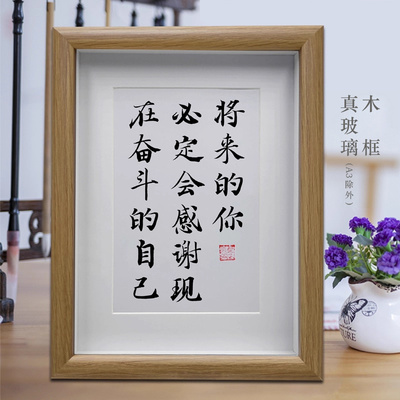 将来的你
必定会感谢现
在奋斗的自己
木框
真玻璃(A3除外)